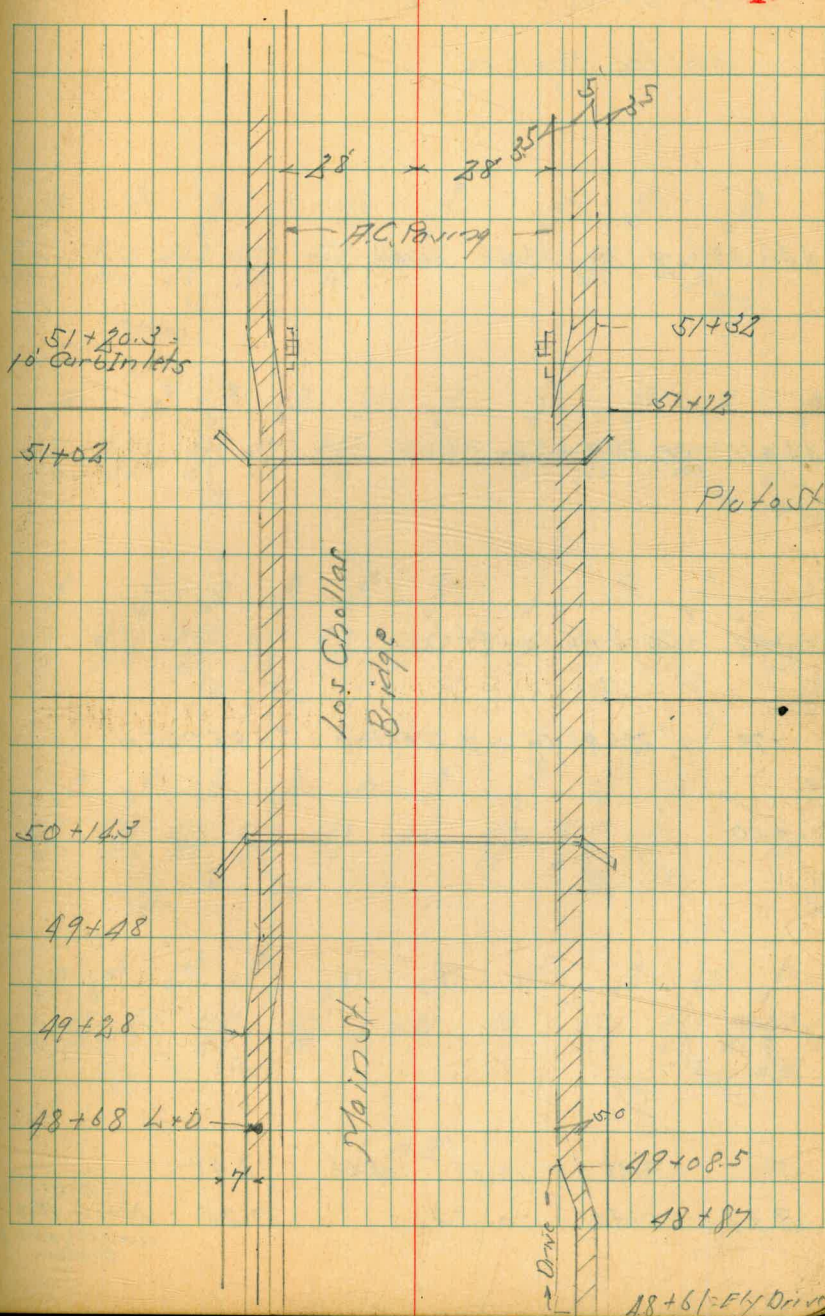 5'
3.5
3.5
28' 28'
A.C. Paving
51+20.3 =
10' Curb Inlets
51+32
51+12
51+02
Pluto St
Los Chollas
Bridge
50+14.3
49+48
49+28
Main St.
48+68 L+D
5.0
7'
49+08.5
48+87
Drive
48+61= E'ly Drive